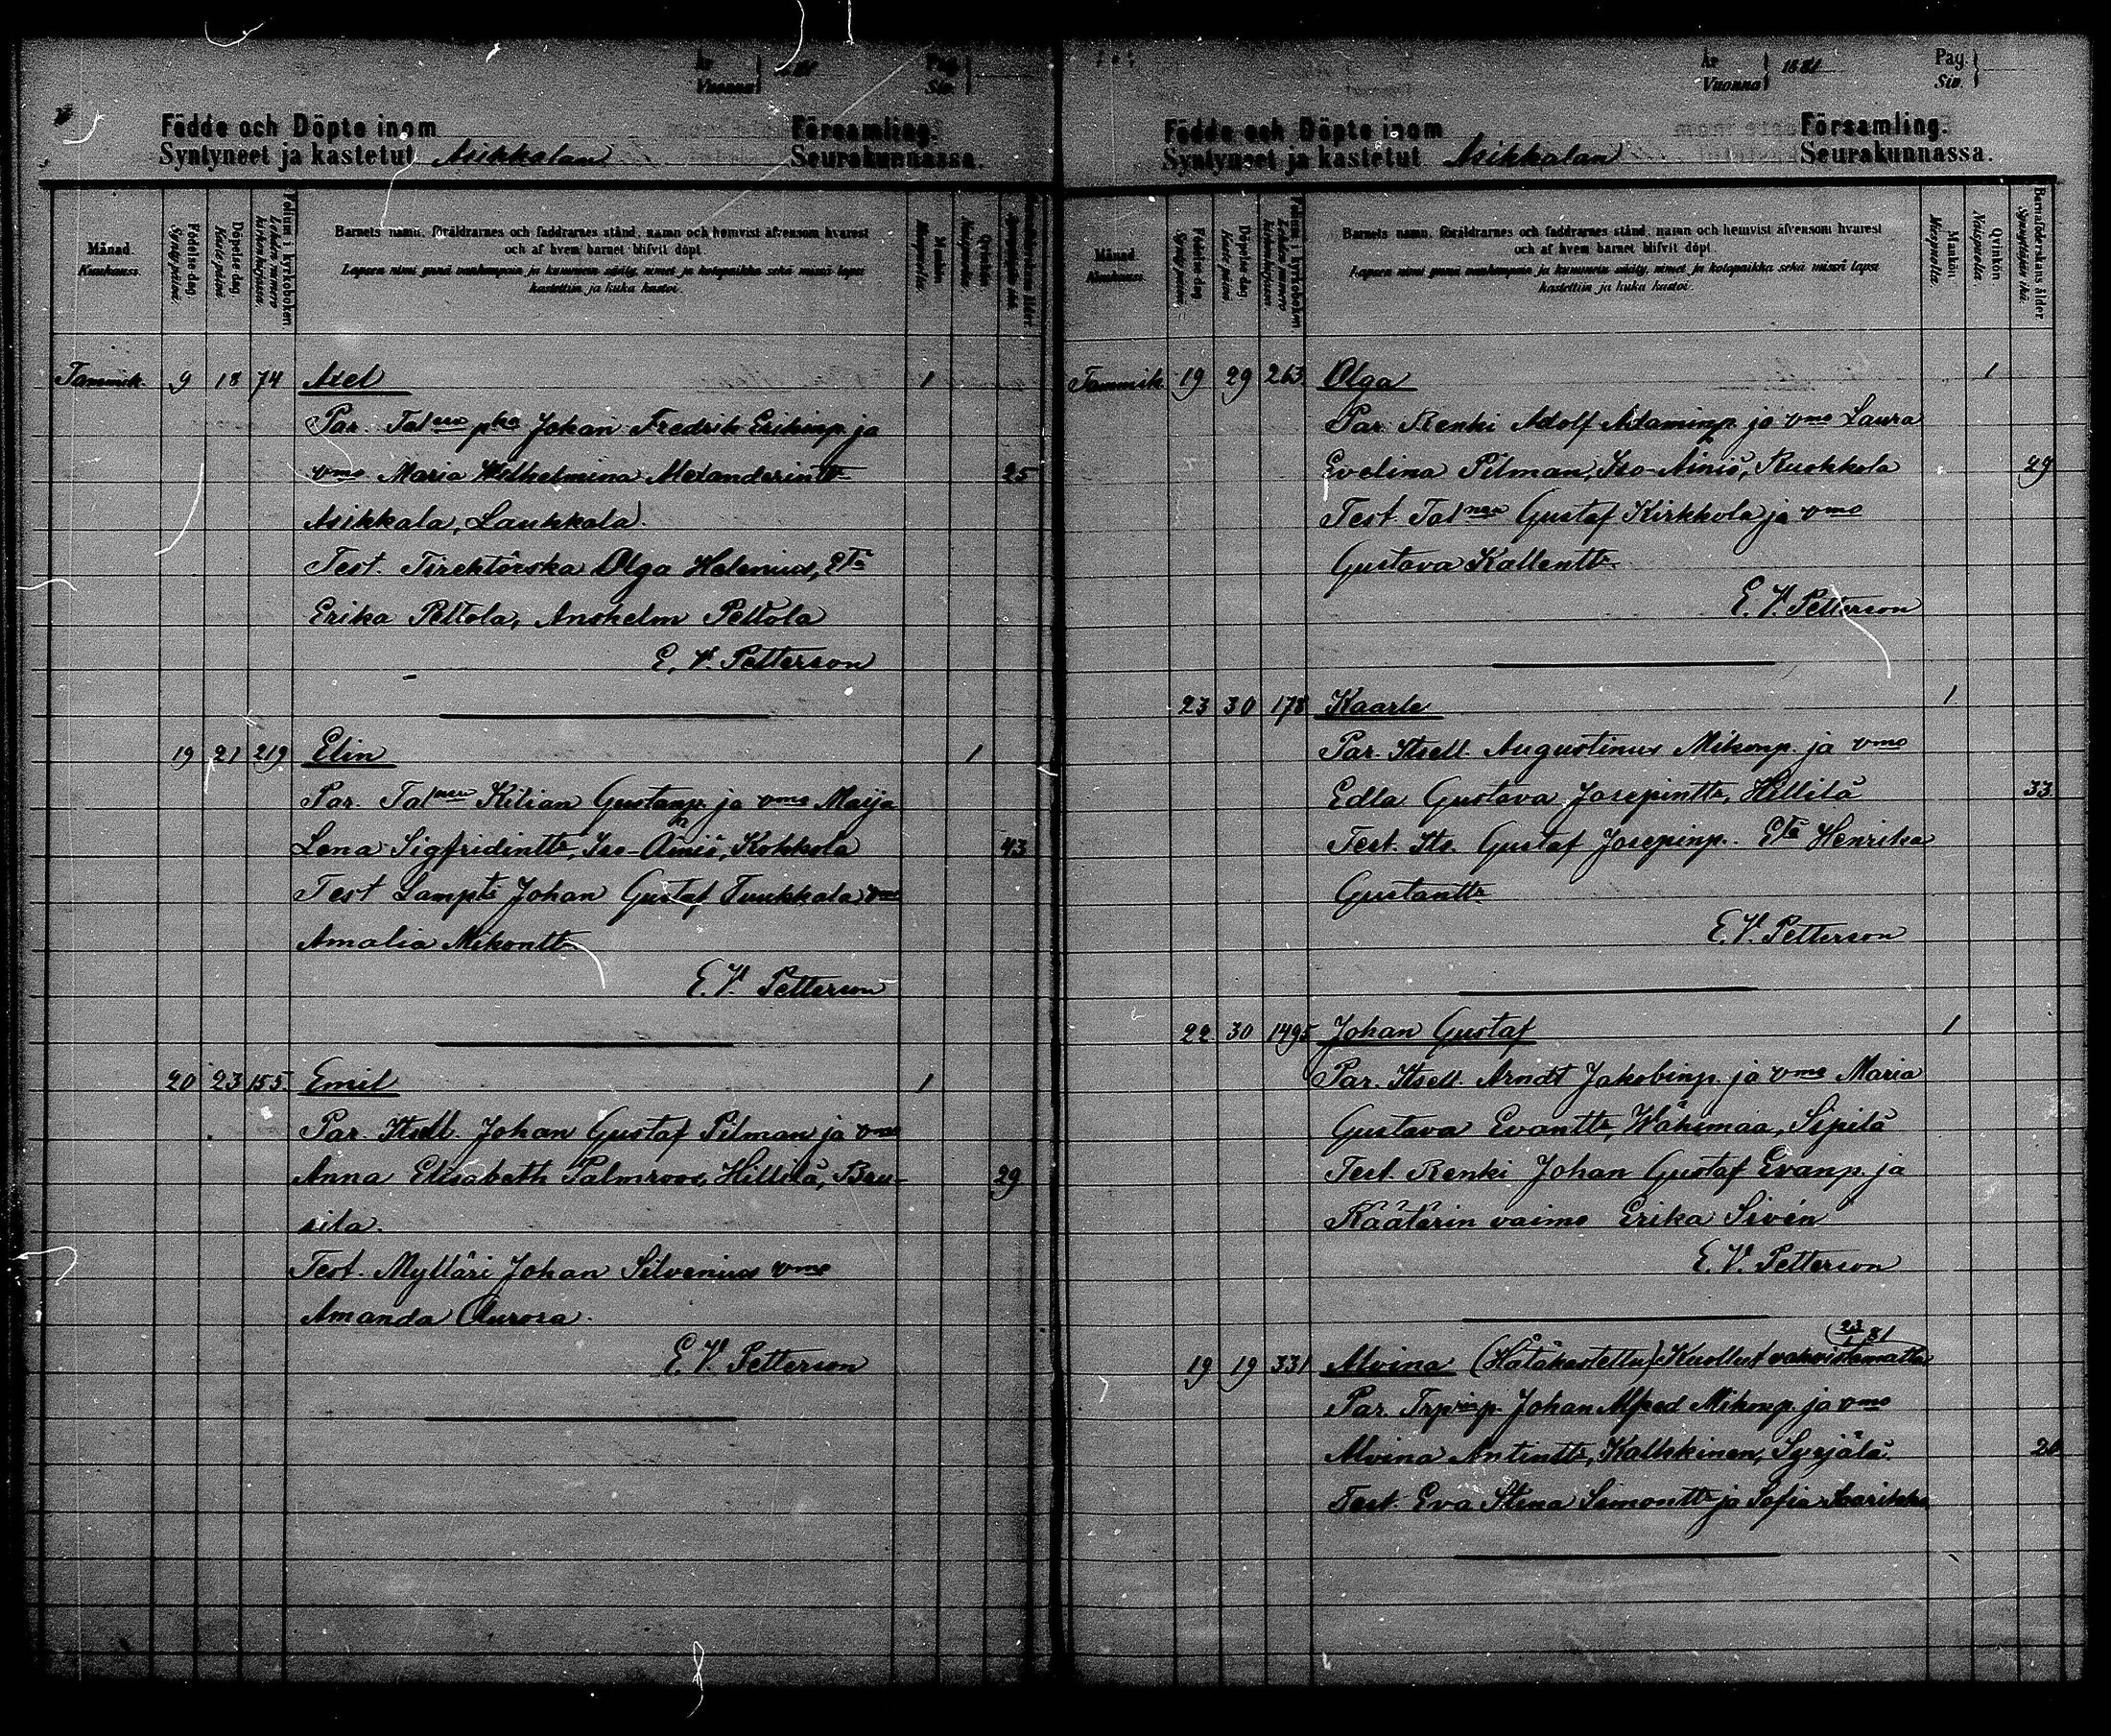 År
Vuonna
Pag.
Siv.
Födde och Döpte inom Församling.
Syntyneet ja kastetut Asikkalan Seurakunnassa.
Månad.
Kuukausi.
Födelse-dag.
Syntypäivä.
Döpelse-dag.
Kaste päivä
Folium i kyrkoboken.
Lehden numero kirkonkirjassa
Barnets namn, föräldrarnes och faddrarnes stånd, namn och hemvist äfvensom hvarest
och af hvem barnet blifvit döpt.
Lapsen nimi ynnä vanhempain ja kummein sääty, nimet ja kotopaikka sekä missä lapsi
kastettiin ja kuka kastoi.
Mankön
Miespuolta
Qvinkön
Naispuolta
Tammik. 9 18 74 Axel 1
Par. Talnen pka Johan Fredrik Erikinp. ja
vmo Maria Wilhelmina Alexanderintr 25
Asikkala, Laukkala.
Test. Tirehtörska Olga Helenius, Eta
Erika Peltola, Anshelm Peltola
E. V. Petterson
19 21 219 Elin 1
Par. Talnen Kilian Gustanp. ja vmo Maija
Lena Sigfridintr, Iso-Äiniö, Kokkola 43
Test Lampti Johan Gustaf Tuukkala, vmo
Amalia Mikontr
E. V. Petterson
20 23 155. Emil 1
Par. Itsell. Johan Gustaf Pilman ja vmo
Anna Elisabeth Palmroos, Hillilä, Beu- 29
sila.
Test. Mylläri Johan Silvenius vmo
Amanda Aurora.
E. V. Petterson
År
Vuonna 1881
Pag.
Siv.
Födde och Döpte inom Församling.
Syntyneet ja kastetut Asikkalan Seurakunnassa.
Månad.
Kuukausi.
Födelse-dag.
Syntypäivä
Döpelse-dag.
Kaste päivä
Folium i kyrkoboken.
Lehden numero kirkonkirjassa
Barnets namn, föräldrarnes och faddrarnes stånd, namn och hemvist äfvensom hvarest
och af hvem barnet blifvit döpt.
Lapsen nimi ynnä vanhempain ja kummein sääty, nimet ja kotopaikka sekä missä lapsi
kastettiin ja kuka kastoi.
Mankön.
Miespuolta.
Qvinkön
Naispuolta.
Barnaföderskans ålder.
Synnyttäjän ikä.
Tammik 19 29 263 Olga 1
Par. Renki Adolf Adaminp. ja vmo Laura
Evelina Pilman, Iso-Äiniö, Ruokkola 29
Test. Talnen Gustaf Kirkkola ja vmo
Gustava Kallentr.
E. V. Petterson
23 30 178 Kaarle 1
Par. Itsell. Augustinus Mikonp. ja vmo
Edla Gustava Josepintr, Hillilä 33
Test. Its. Gustaf Josepinp. Eta Henrika
Gustantr
E. V. Petterson
22 30 1495 Johan Gustaf 1
Par. Itsell. Arndt Jakobinp. ja vmo Maria
Gustava Evantr, Wähimaa, Sipilä
Test. Renki Johan Gustaf Evanp. ja
Räätärin vaimo Erika Sivén
E. V. Petterson
19 19 331 Alvina (Hätäkastettu) Kuollut vahvistamatta (23/1 81
Par. Trprinp. Johan Alfred Mikonp. ja vmo
Alvina Antintr, Kalkkinen, Syrjälä.
Test. Eva Stina Simontr ja Sofia Kaarikko